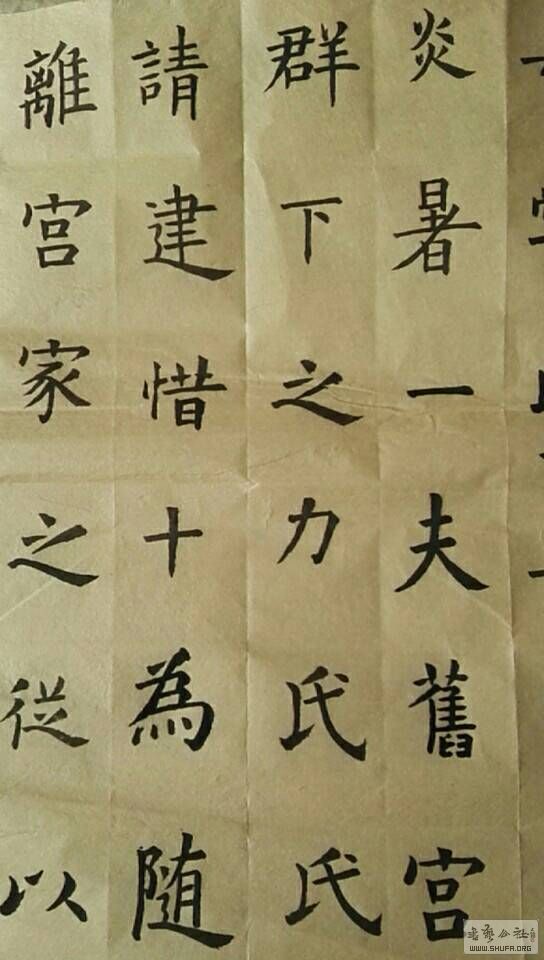 炎暑一夫舊宮
群下之力氏氏
請建惜十為随
離宮家之従以
WWW.SHUFA.ORG